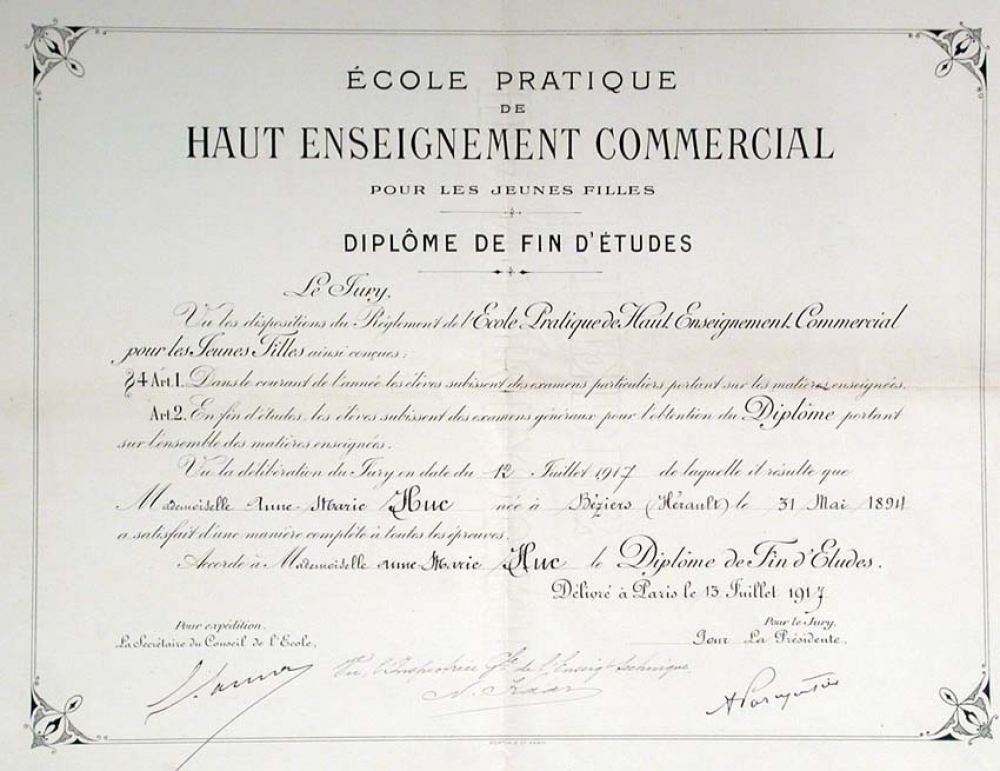 ÉCOLE PRATIQUE
DE
HAUT ENSEIGNEMENT COMMERCIAL
POUR LES JEUNES FILLES
DIPLÔME DE FIN D'ÉTUDES
Le Jury,
Vu les dispositions du Règlement de l'Ecole Pratique de Haut Enseignement Commercial
pour les Jeunes Filles ainsi conçues :
§4 Art.1. Dans le courant de l'année les élèves subissent des examens particuliers portant sur les matières enseignées.
Art.2. En fin d'études, les élèves subissent des examens généraux pour l'obtention du Diplôme portant
sur l'ensemble des matières enseignées.
Vu la délibération du Jury en date du 12 Juillet 1917 de laquelle il résulte que
Mademoiselle Anne-Marie Huc née à Béziers (Hérault) le 31 Mai 1894
a satisfait d'une manière complète à toutes les épreuves.
Accorde à Mademoiselle Anne-Marie Huc le Diplôme de Fin d'Etudes.
Délivré à Paris le 13 Juillet 1917
Pour expédition.
La Secrétaire du Conseil de l'Ecole,
Pour le Jury,
Pour La Présidente,
Vu, l'Inspectrice Gle de l'Enseigt technique